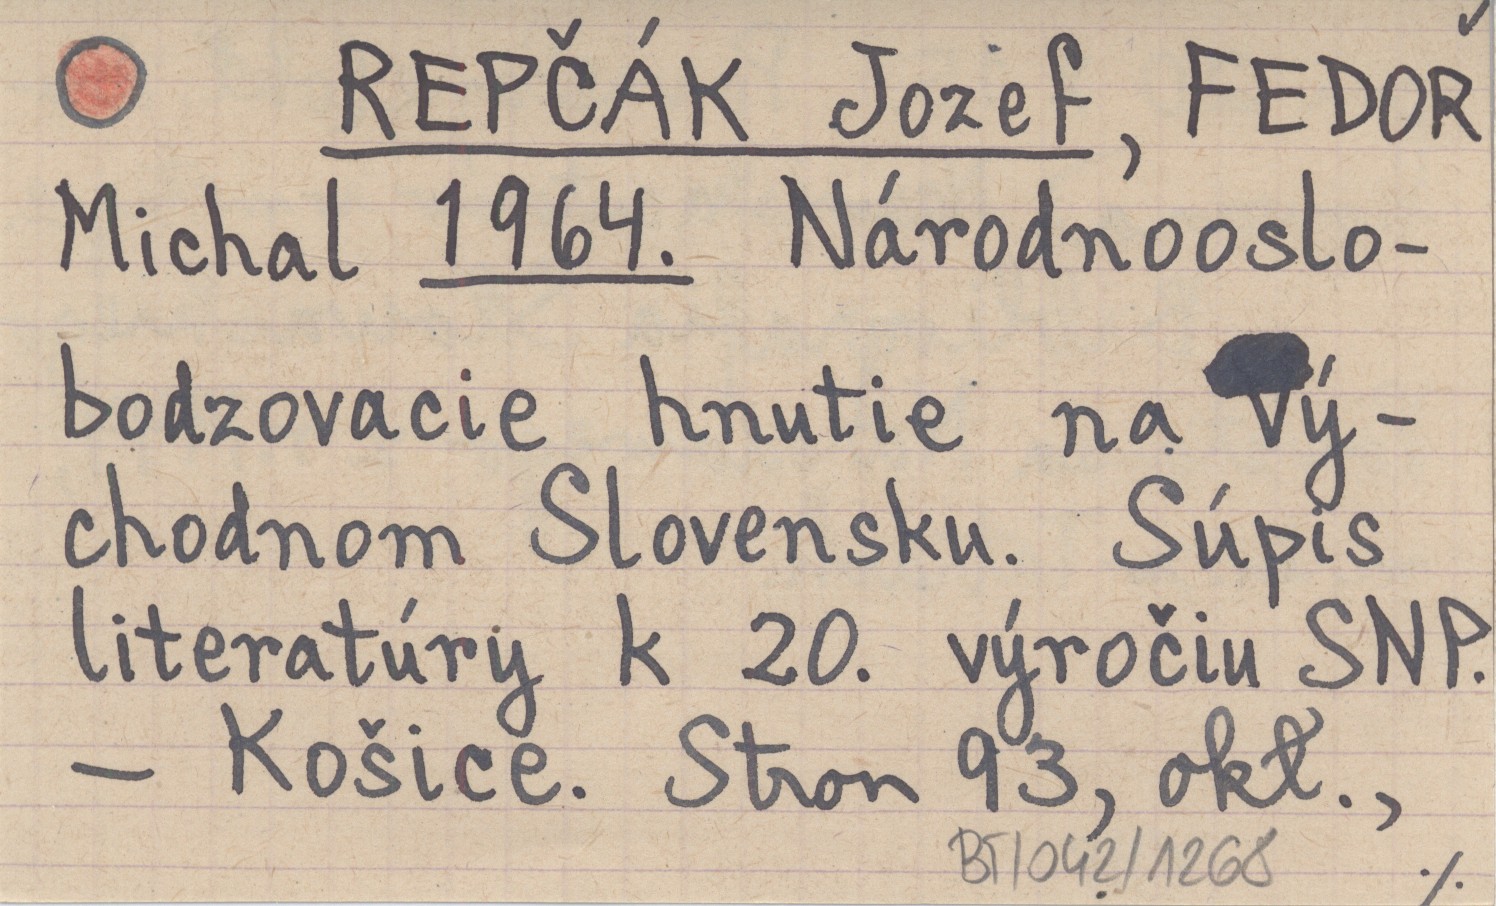 REPČÁK Jozef, FEDOR
Michal 1964. Národnooslo-
bodzovacie hnutie na Vý-
chodnom Slovensku. Súpis
literatúry k 20. výročiu SNP.
— Košice. Stron 93, okł.,
BT/042/1268
./.